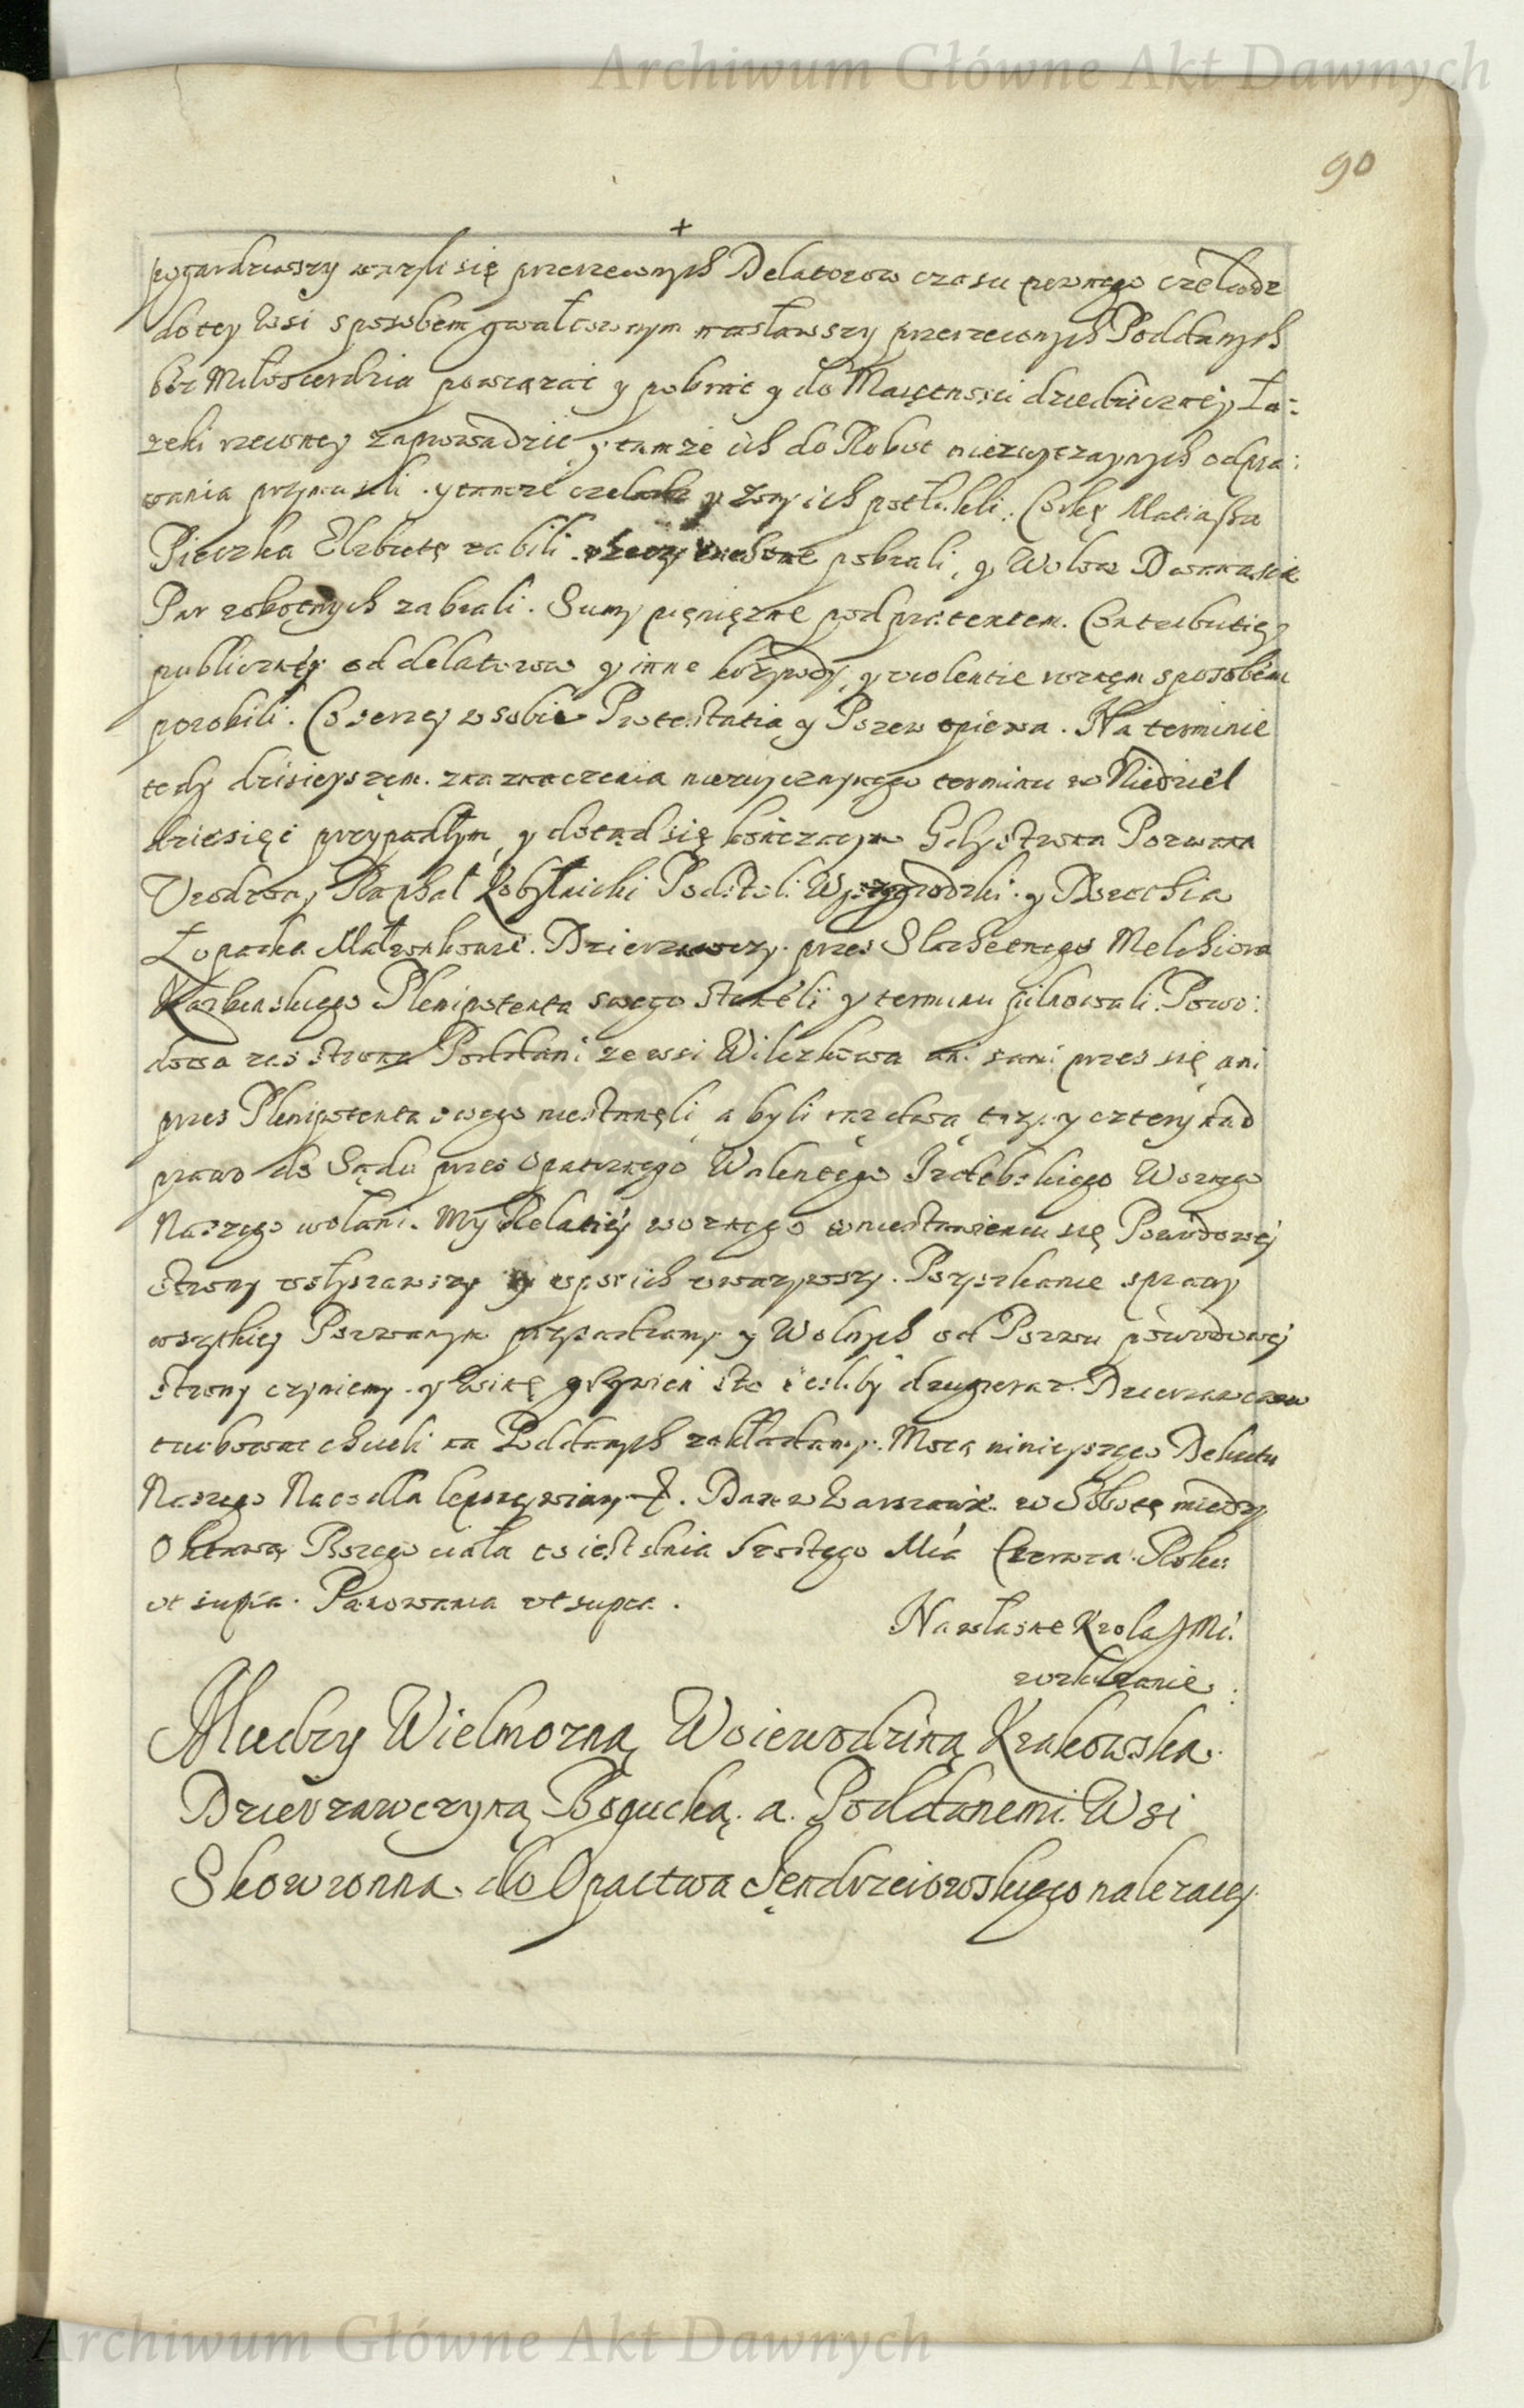 Archiwum Główne Akt Dawnych
90
+
pogardziwszy ważyli się przerzeczonych Delatorow czasu pewnego czeladz
do tey Wsi sposobem gwałtownym nasławszy przerzeczonych Poddanych
bez Miłosierdzia powiązać y pobrać y do Maiętnosci dziedziczney Ła:
zeki rzeczoney zaprowadzic y tamże ich do Robot niezwyczaynych odpra:
wania przymusili. y tamże czeladz y Zony ich potłukli. Corkę Matiasza
Pieczka Elzbietę zabili. rzeczy pobrali, y Wołow Dwanascie
Par robotnych zabrali. Sumy pięnięzne pod praetextem Contributiey
publiczney od delatorow y inne krzywdy, y violentie roznem sposobem
porobili. Co szerzey w sobie Protestatia y Pozew opiewa. Na terminie
tedy dzisieyszem. znaznaczenia niezwyczaynego terminu w Niedziel
dziesięć przypadłym, y dotąd się kończącym Gdy Strona Pozwana
Urodzony Raphał Kobylnicki Podstoli Wyszogrodzki. y Barochia
Łopacka Małzonkowie. Dzierzawcy. przes Slachetnego Melchiora
Karbenskiego Plenipotenta swego stanęli y terminu pilnowali. Powo:
dowa zas strona Poddani ze wsi Wilczkowa ani sami przes się ani
przes Plenipotenta swego niestanęli, a byli raz dwa trzy y cztery nad
prawo do Sądu przes Opatrznego Walentego Izdebskiego Woznego
Naszego wołani. My Relatiey woznego o niestawieniu się Powodowey
strony usłyszawszy y uporich uwazywszy. Pozyskanie sprawy
wszytkiey Pozwanym przysądzamy y Wolnych od Pozwu powodowey
strony czyniemy. y Winę grzywien sto iesliby drugi raz. Dzierzawcow
turbowac chcieli na Poddanych zakładamy. Mocą ninieyszego Dekretu
Naszego Naco dla lepszey wiary &. Dan w Warszawie. w Sobotę miedzy
Oktawą Bozego ciała to iest dnia Szostego Mca Czerwca. Roku
ut supra. Panowania ut supra.
Na własne Krola J Mci.
rozkazanie.
Miedzy Wielmozną Woiewodziną Krakowska
Dzierzawczyną Bogucką. a. Poddanemi. Wsi
Skowronna. do Opactwa Jendrzeiowskiego nalezacey.
Archiwum Główne Akt Dawnych